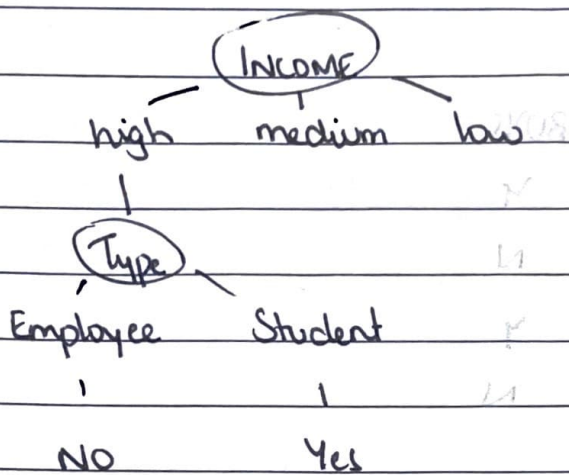 INCOME
high medium low
Type
Employee Student
NO Yes